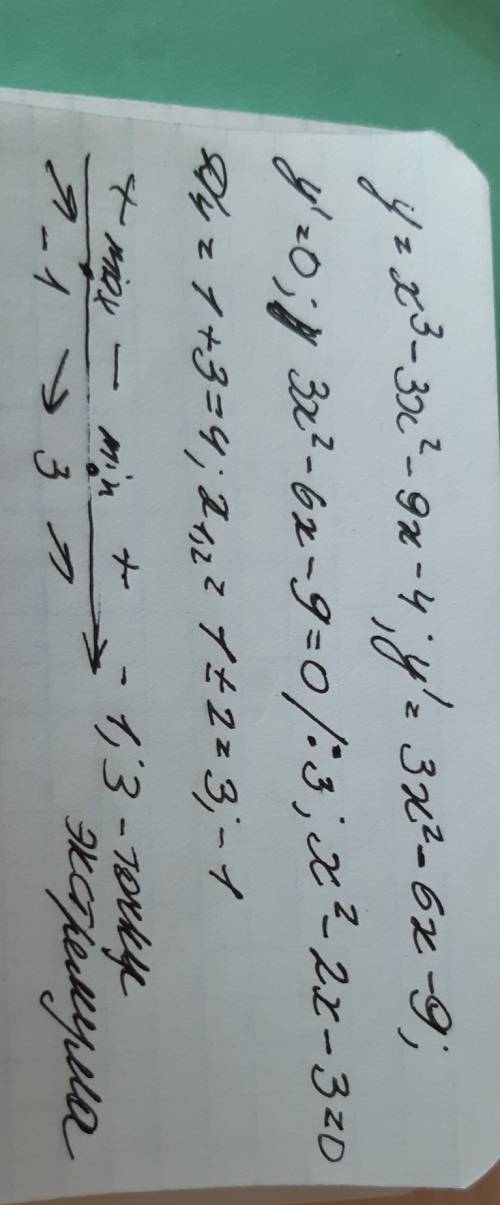 y = x³ - 3x² - 9x - 4; y' = 3x² - 6x - 9;
y' = 0; 3x² - 6x - 9 = 0 /:3; x² - 2x - 3 = 0
D/4 = 1 + 3 = 4; x₁,₂ = 1 ± 2 = 3; -1
+ max - min +
↗ -1 ↘ 3 ↗
-1; 3 - точки
экстремума